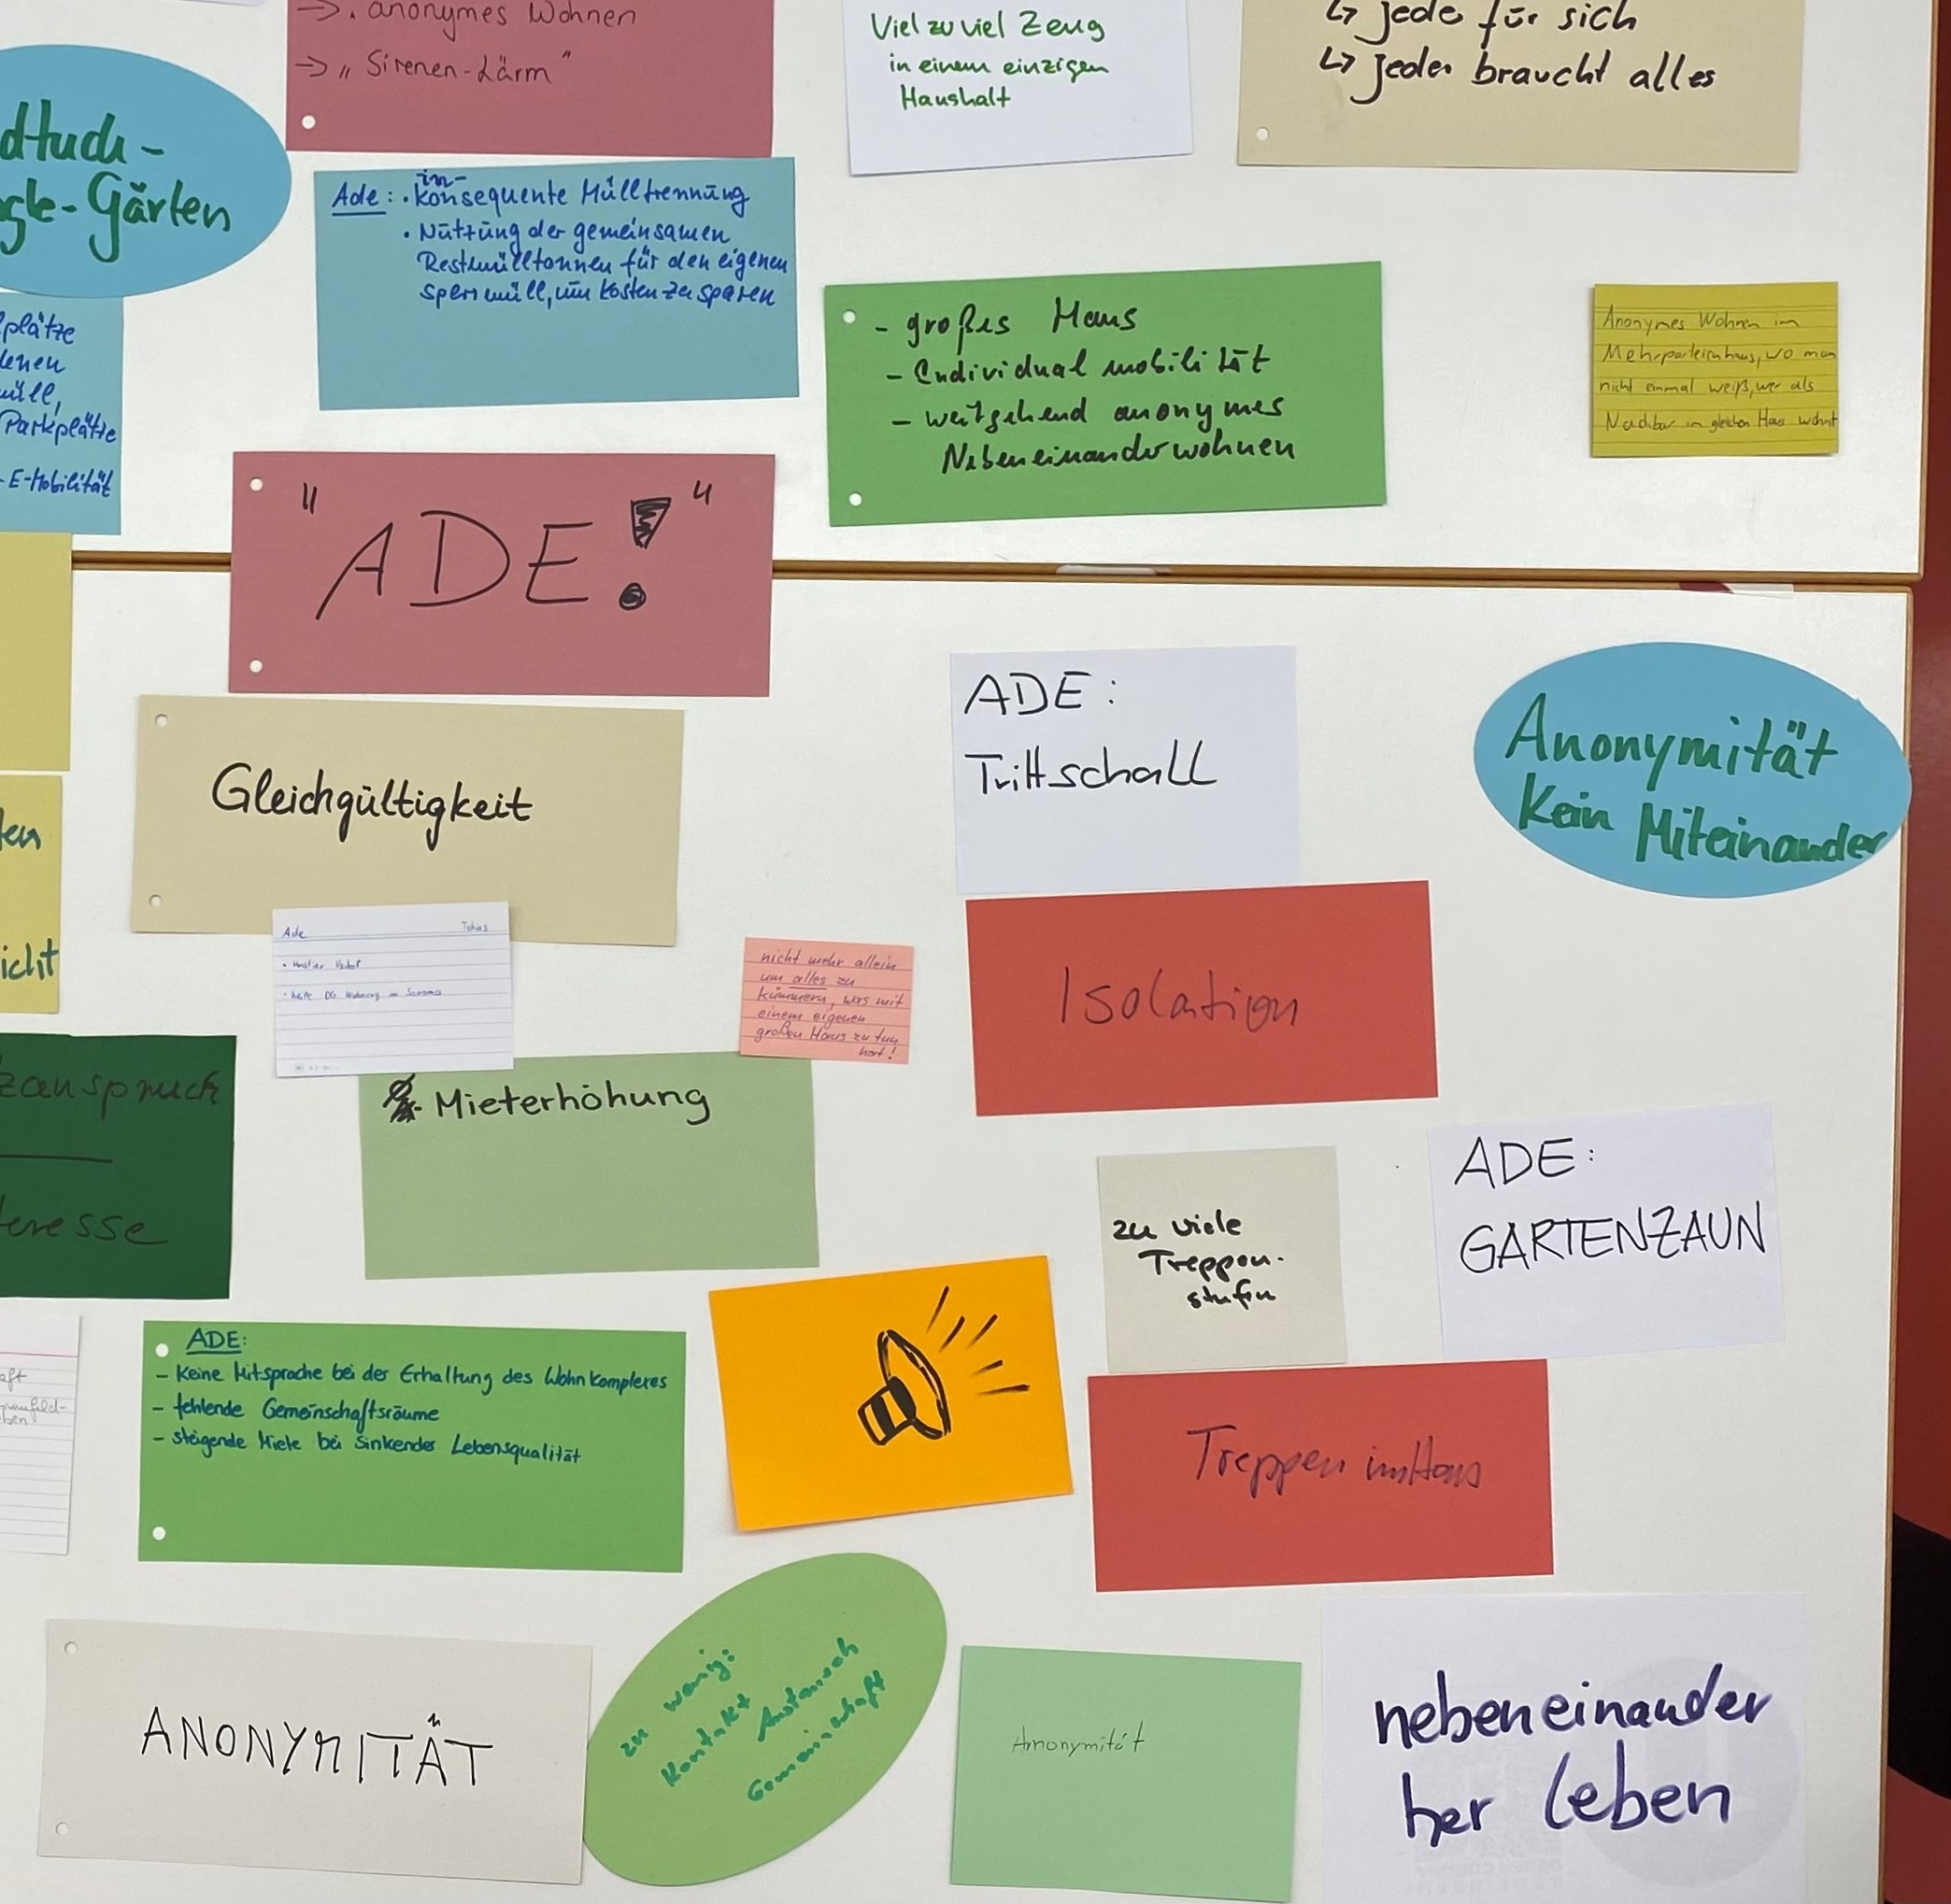 → . anonymes Wohnen
→ „ Sirenen-Lärm "
Viel zu viel Zeug
in einem einzigen
Haushalt
↳ jede für sich
↳ jeder braucht alles
dtuch-
-Gärten
in-
Ade: · konsequente Mülltrennung
· Nutzung der gemeinsamen
Restmülltonnen für den eigenen
Sperrmüll, um Kosten zu sparen
plätze
müll,
Parkplätze
- E-Mobilität
- großes Haus
- Individualmobilität
- weitgehend anonymes
Nebeneinanderwohnen
Anonymes Wohnen im
Mehrparteienhaus, wo man
nicht einmal weiß, wer als
Nachbar im gleichen Haus wohnt
"ADE!"
ADE:
Trittschall
Anonymität
Kein Miteinander
Gleichgültigkeit
ten
icht
Ade Tobias
nicht mehr allein
um alles zu
kümmern, was mit
einem eigenen
großen Haus zu tun
hat!
Isolation
zanspruch
teresse
Mieterhöhung
zu viele
Treppen-
stufen
ADE:
GARTENZAUN
ADE:
- Keine Mitsprache bei der Erhaltung des Wohnkomplexes
- fehlende Gemeinschaftsräume
- steigende Miete bei sinkender Lebensqualität
Treppen im Haus
ANONYMITÄT
zu wenig:
Kontakt
Austausch
Gemeinschaft
Anonymität
nebeneinander
her leben